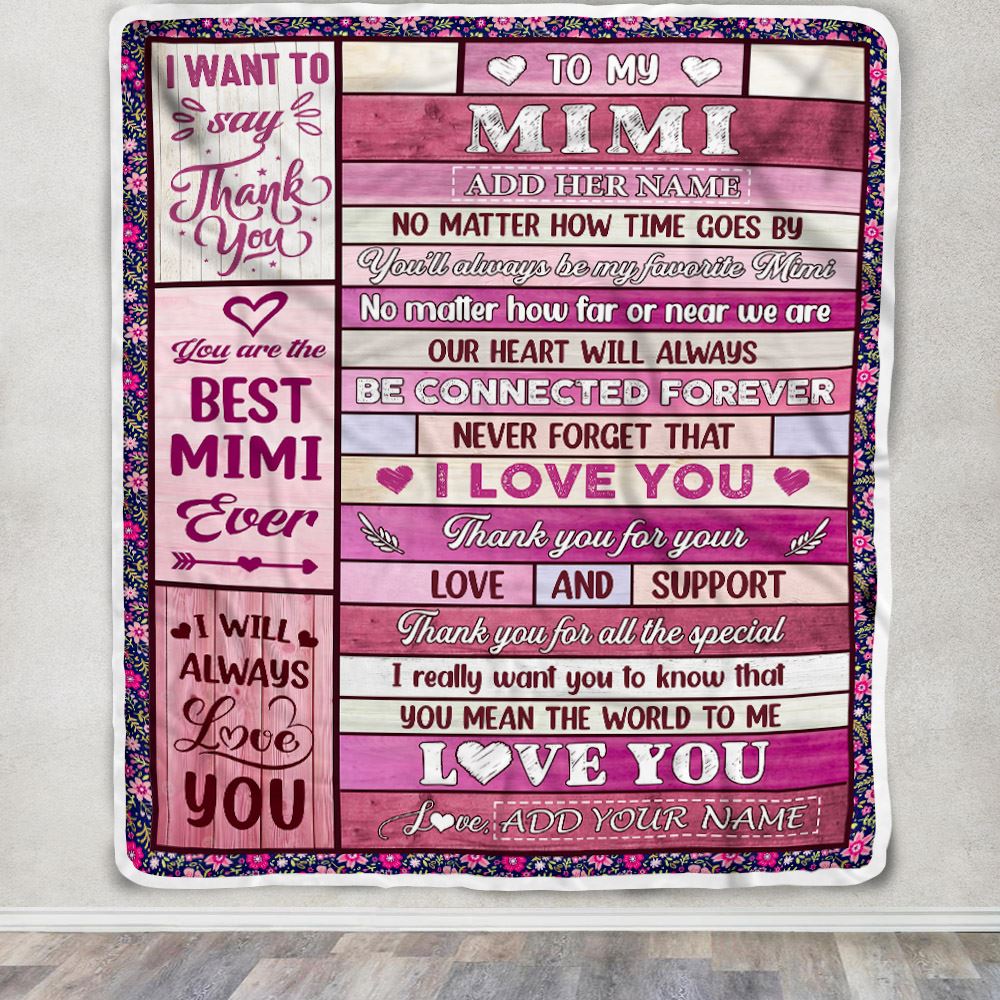 I WANT TO
say
Thank
You
You are the
BEST
MIMI
Ever
I WILL
ALWAYS
Love
YOU
TO MY
MIMI
ADD HER NAME
NO MATTER HOW TIME GOES BY
You'll always be my favorite Mimi
No matter how far or near we are
OUR HEART WILL ALWAYS
BE CONNECTED FOREVER
NEVER FORGET THAT
I LOVE YOU
Thank you for your
LOVE AND SUPPORT
Thank you for all the special
I really want you to know that
YOU MEAN THE WORLD TO ME
LOVE YOU
Love, ADD YOUR NAME